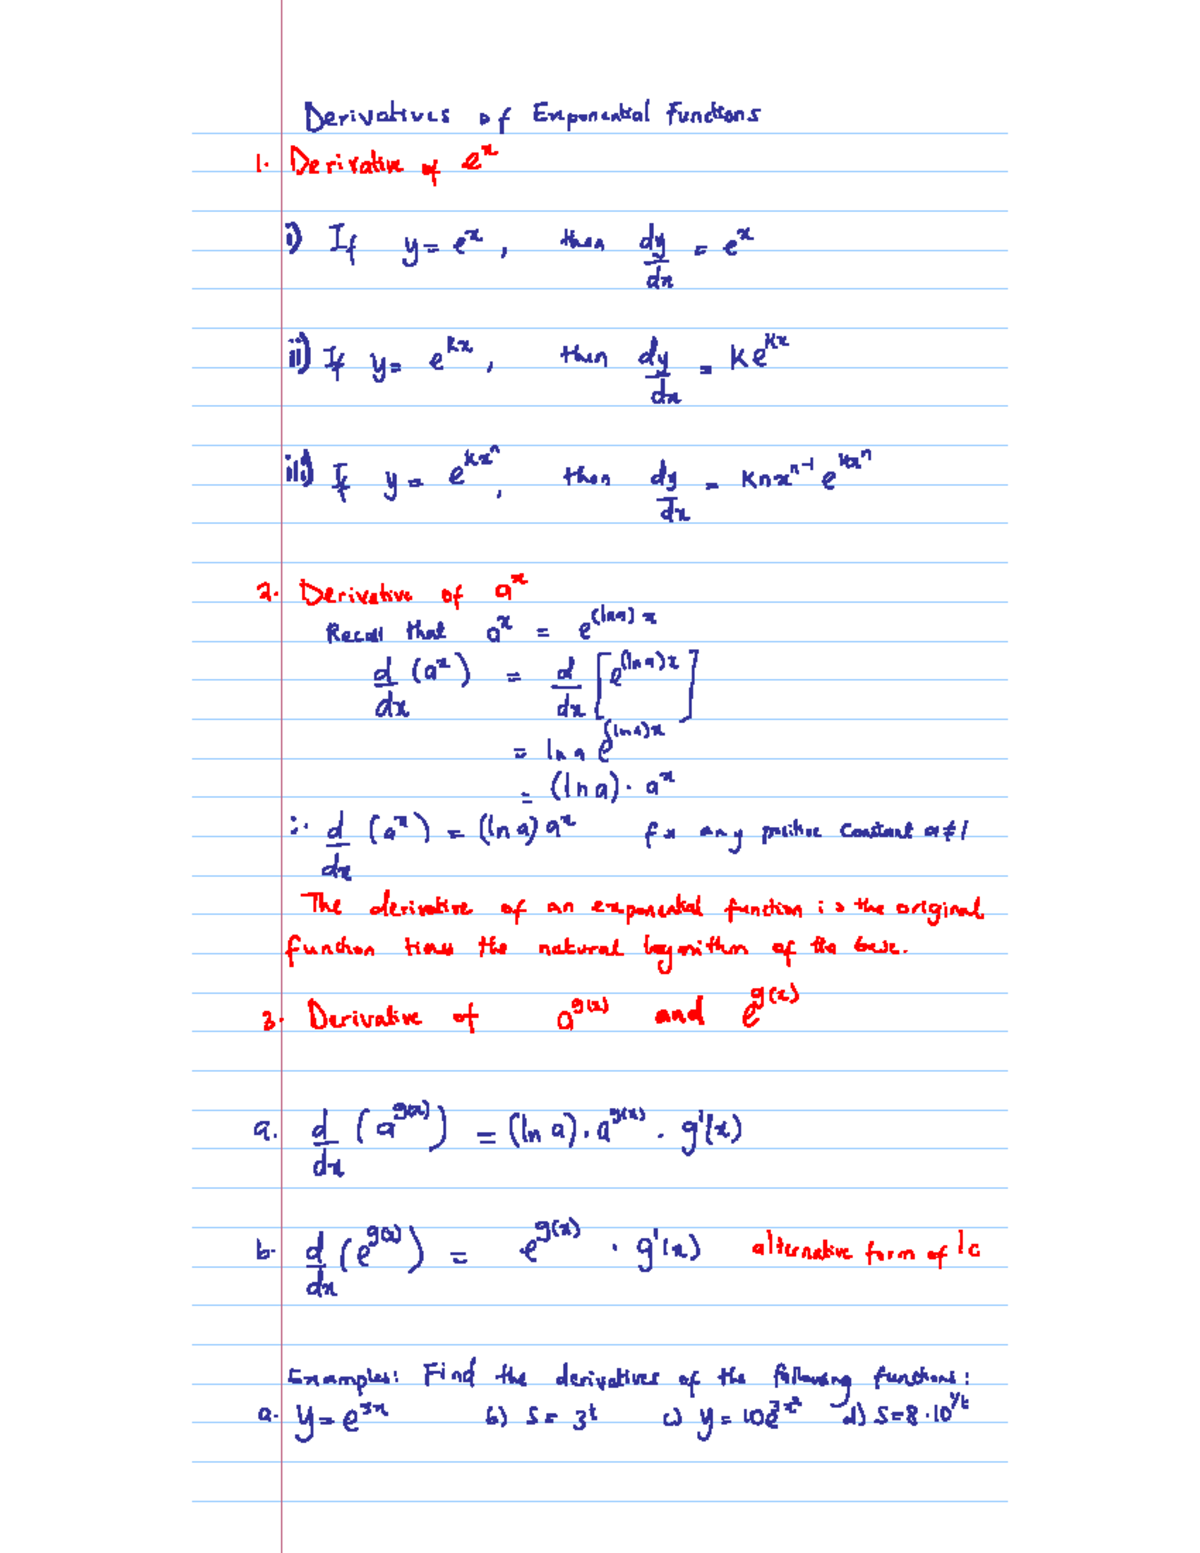 Derivatives of Exponential Functions
1. Derivative of e^x
i) If y = e^x, then dy/dx = e^x
ii) If y = e^{kx}, then dy/dx = k e^{kx}
iii) If y = e^{kx^n}, then dy/dx = knx^{n-1} e^{kx^n}
2. Derivative of a^x
Recall that a^x = e^{(ln a) x}
d/dx (a^x) = d/dx [e^{(ln a) x}]
= ln a e^{(ln a) x}
= (ln a) · a^x
∴ d/dx (a^x) = (ln a) a^x for any positive constant a ≠ 1
The derivative of an exponential function is the original
function times the natural logarithm of the base.
3. Derivative of a^{g(x)} and e^{g(x)}
a. d/dx (a^{g(x)}) = (ln a) · a^{g(x)} · g'(x)
b. d/dx (e^{g(x)}) = e^{g(x)} · g'(x) alternative form of 1c
Examples: Find the derivatives of the following functions:
a. y = e^{3x} b) S = 3^t c) y = 10e^{3x^2} d) S = 8 · 10^{1/t}